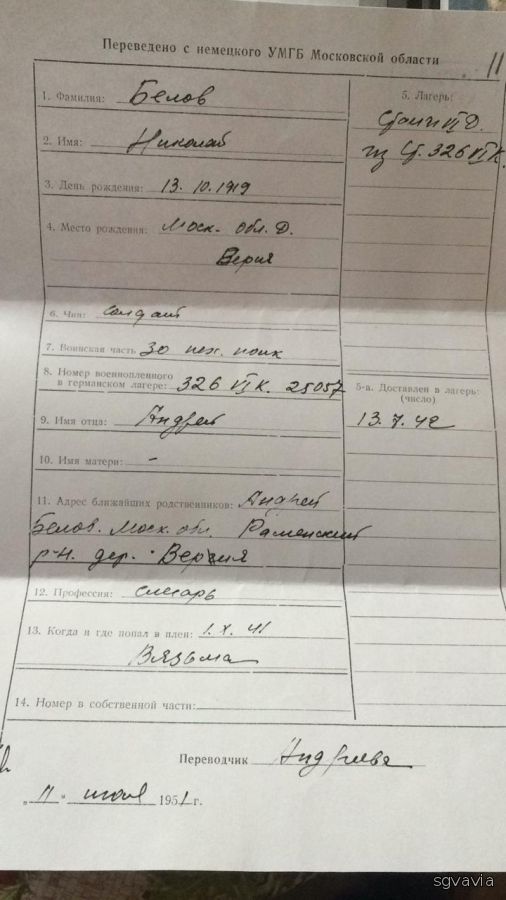 Переведено с немецкого УМГБ Московской области
11
1. Фамилия: Белов
2. Имя: Николай
3. День рождения: 13. 10. 1919
4. Место рождения: Моск. обл. Д.
Верия
5. Лагерь:
Сталаг VI Д.
из Ст. 326 VI К.
6. Чин: солдат
7. Воинская часть 30 пех. полк
8. Номер военнопленного
в германском лагере: 326 VI К. 25057
5-а. Доставлен в лагерь:
(число)
13. 7. 42
9. Имя отца: Андрей
10. Имя матери: -
11. Адрес ближайших родственников: Андрей
Белов. Моск. обл. Раменский
р-н. дер. Верхия
12. Профессия: слесарь
13. Когда и где попал в плен: 1. X. 41
Вязьма
14. Номер в собственной части:
Переводчик
„11“ 1951 г.
sgvavia